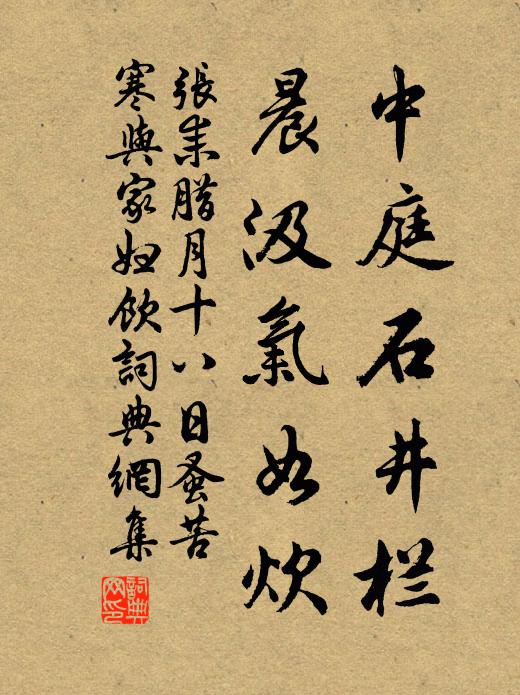 中庭石井栏
晨汲氣如炊
張耒腊月十八日蚤苦
寒與家婦飲詞典網集
詞典網印